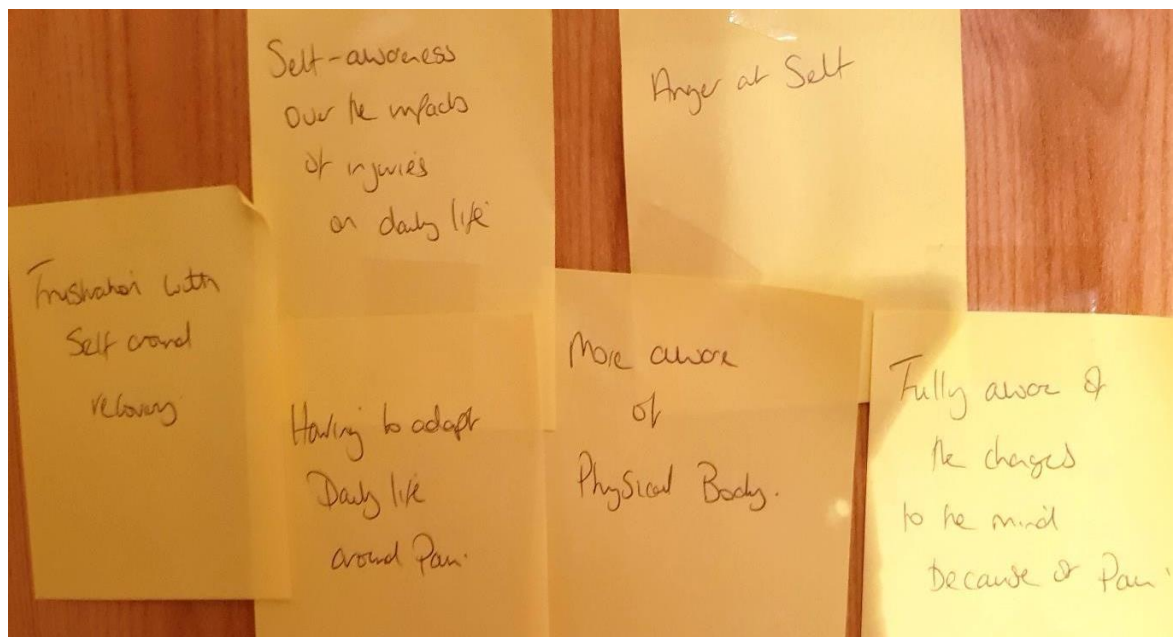 Self-awareness
over the impacts
of injuries
on daily life
Anger at Self
Frustration with
Self around
recovery
Having to adapt
Daily life
around Pain.
More aware
of
Physical Body.
Fully aware of
the changes
to the mind
because of Pain.